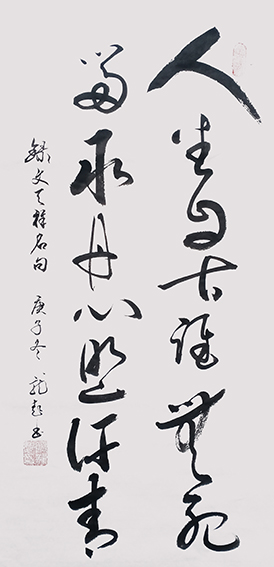 人生自古谁无死
留取丹心照汗青
録文天祥名句 庚子冬 龍彭书